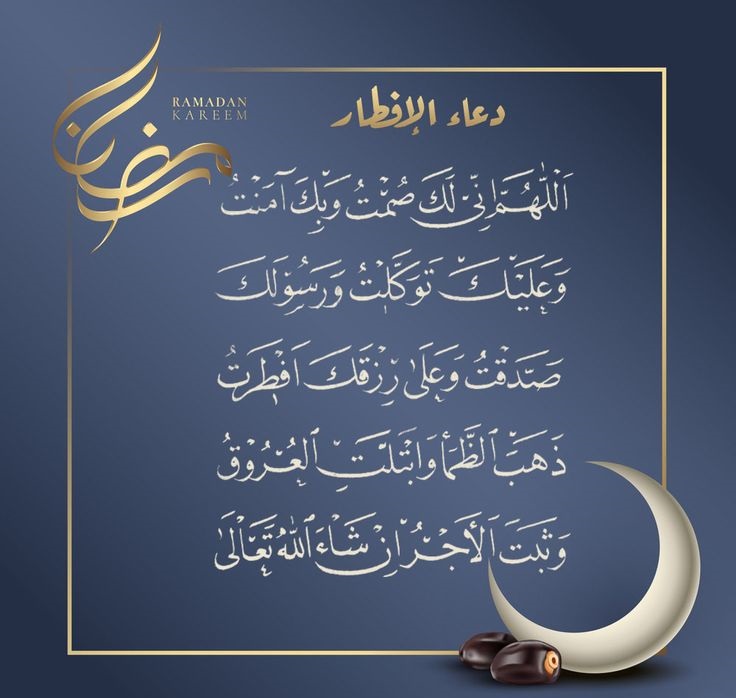 رمضان
RAMADAN
KAREEM
دعاء الإفطار
اَللّٰهُمَّ اِنِّيْ لَكَ صُمْتُ وَبِكَ آمَنْتُ
وَعَلَيْكَ تَوَكَّلْتُ وَرَسُوْلَكَ
صَدَّقْتُ وَعَلَىٰ رِزْقِكَ اَفْطَرْتُ
ذَهَبَ ٱلظَّمَأُ وَابْتَلَّتِ ٱلْعُرُوْقُ
وَثَبَتَ ٱلأَجْرُ اِنْ شَاءَ ٱللهُ تَعَالَىٰ